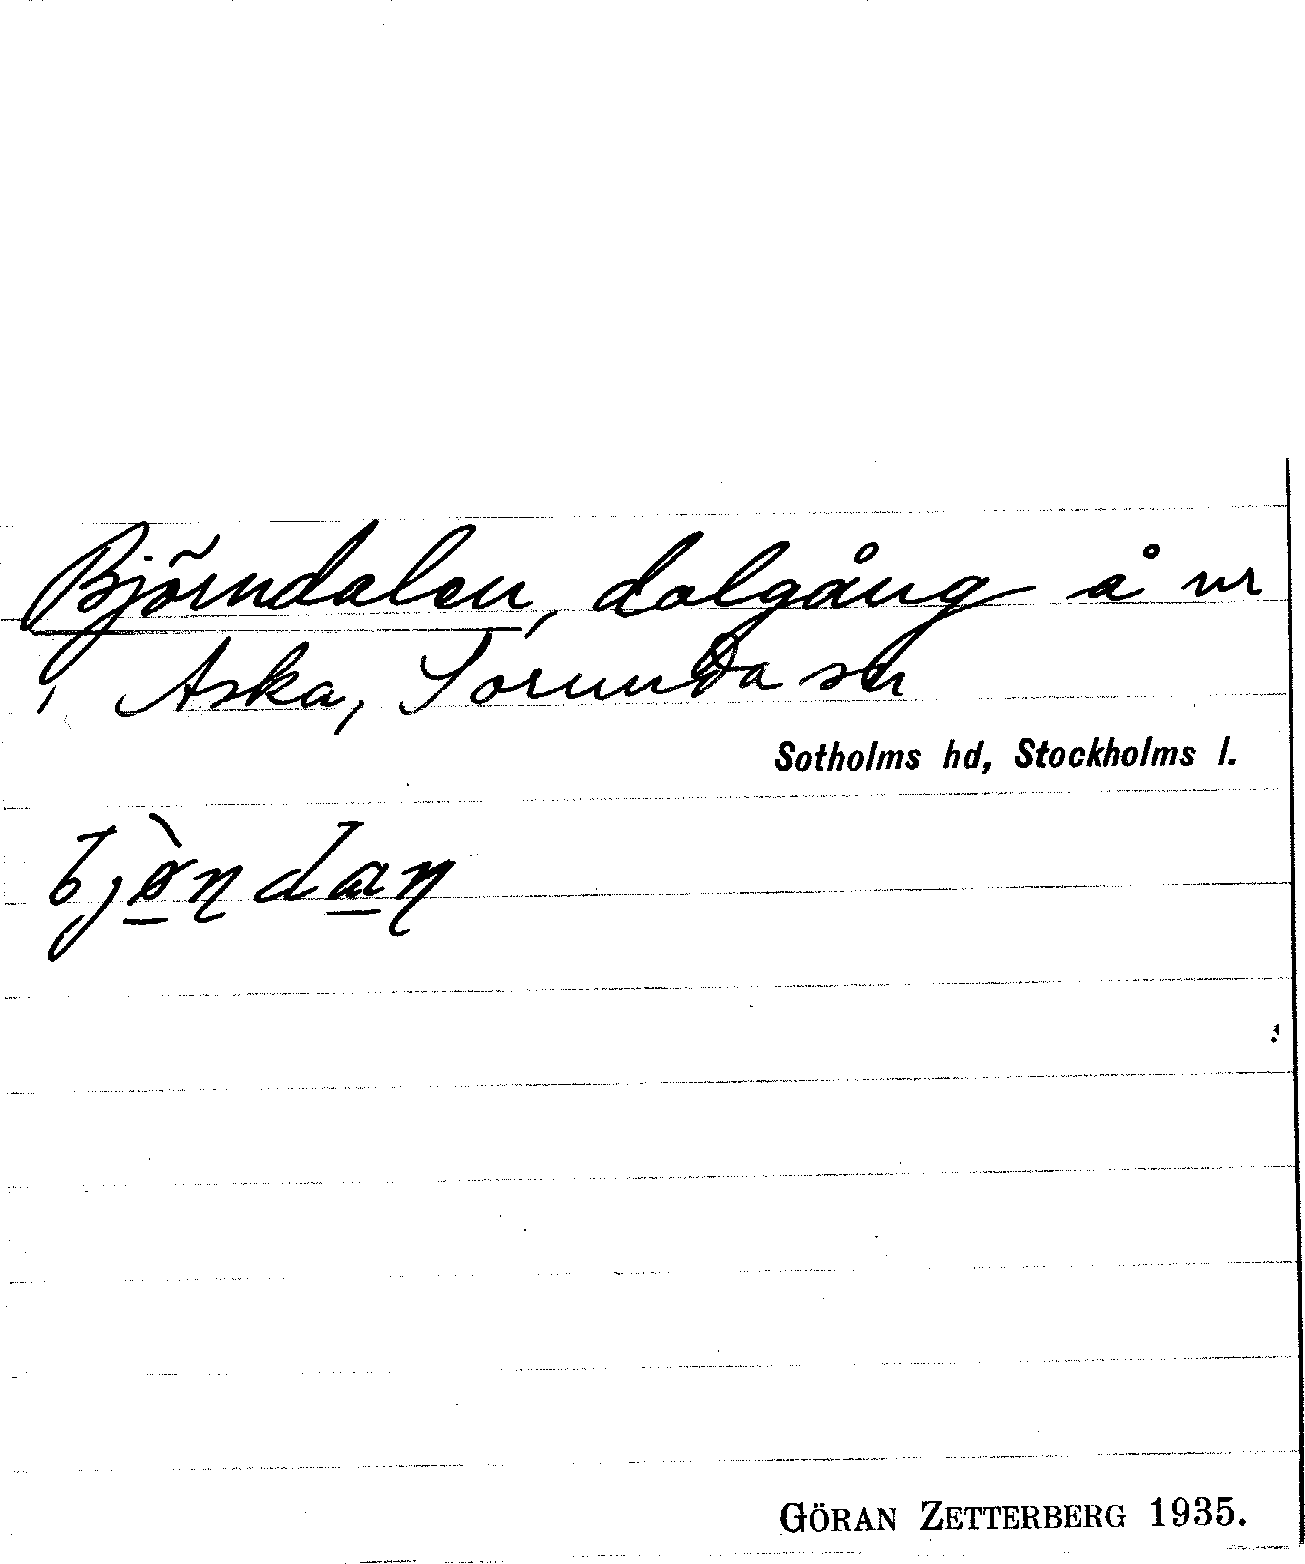 Björndalen, dalgång å nr
1 Aska, Sorunda sn
Sotholms hd, Stockholms l.
bjø̀ndan
GÖRAN ZETTERBERG 1935.